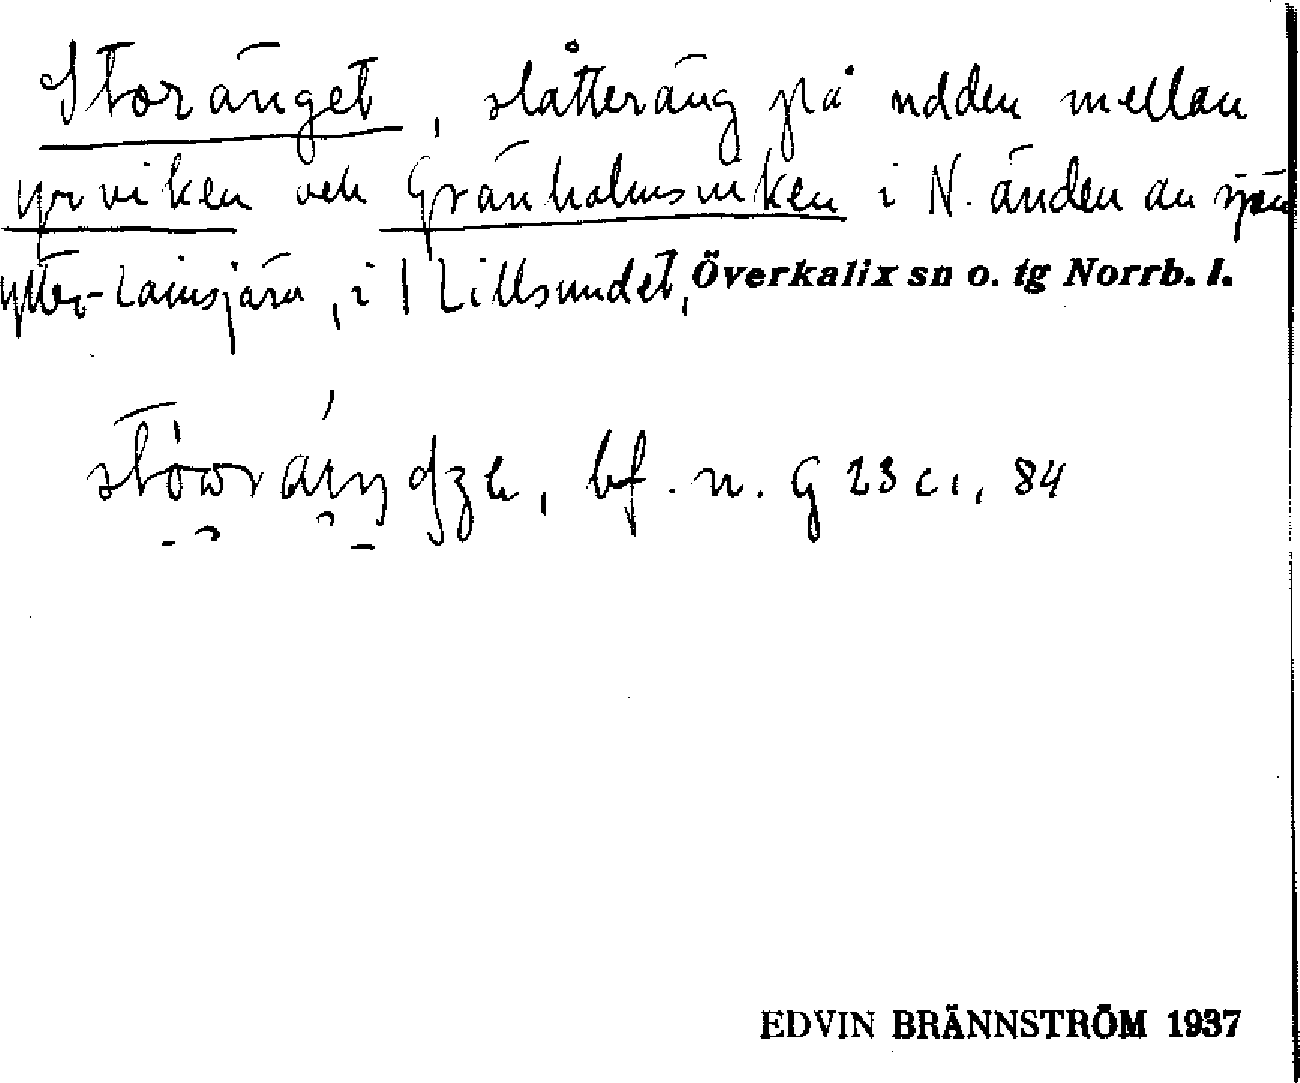 Storänget, slåtteräng på udden mellan
yrviken och Gränholmsviken i N. änden av sjön
ytter-Lainsjärv, i | Lillsundet, Överkalix sn o. tg Norrb. l.
bf. n. G 23 c 1, 84
EDVIN BRÄNNSTRÖM 1937